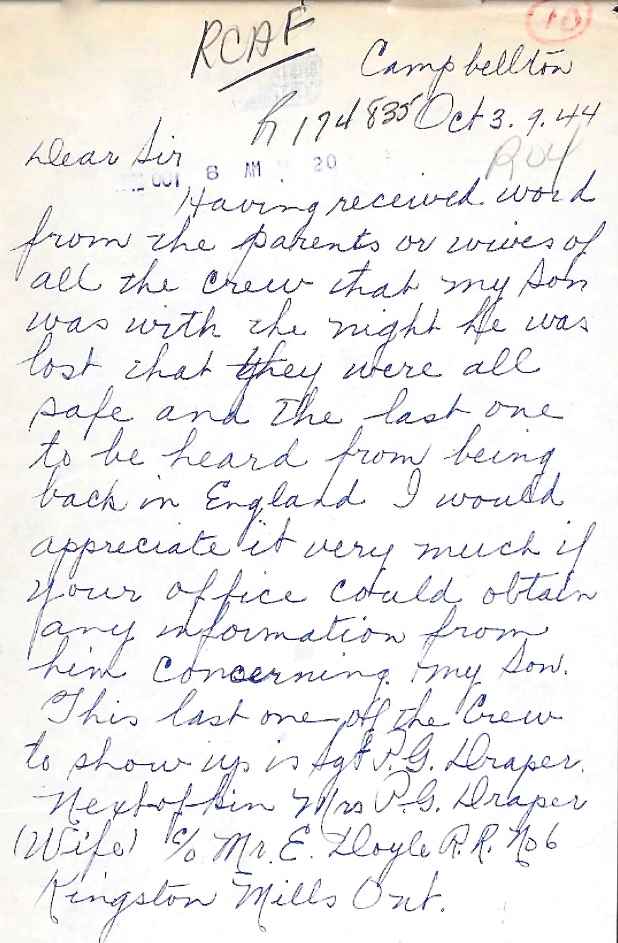 10
RCAF
Campbellton
R174835 Oct 3.9.44
R04
Dear Sir
OCT 6 AM
Having received word
from the parents or wives of
all the crew that my Son
was with the night he was
lost that they were all
safe and the last one
to be heard from being
back in England I would
appreciate it very much if
your office could obtain
any information from
him concerning my Son.
This last one of the Crew
to show up is Sgt P.G. Draper.
Next of kin Mrs P.G. Draper
(Wife) c/o Mr. E. Doyle R.R. No 6
Kingston Mills Ont.